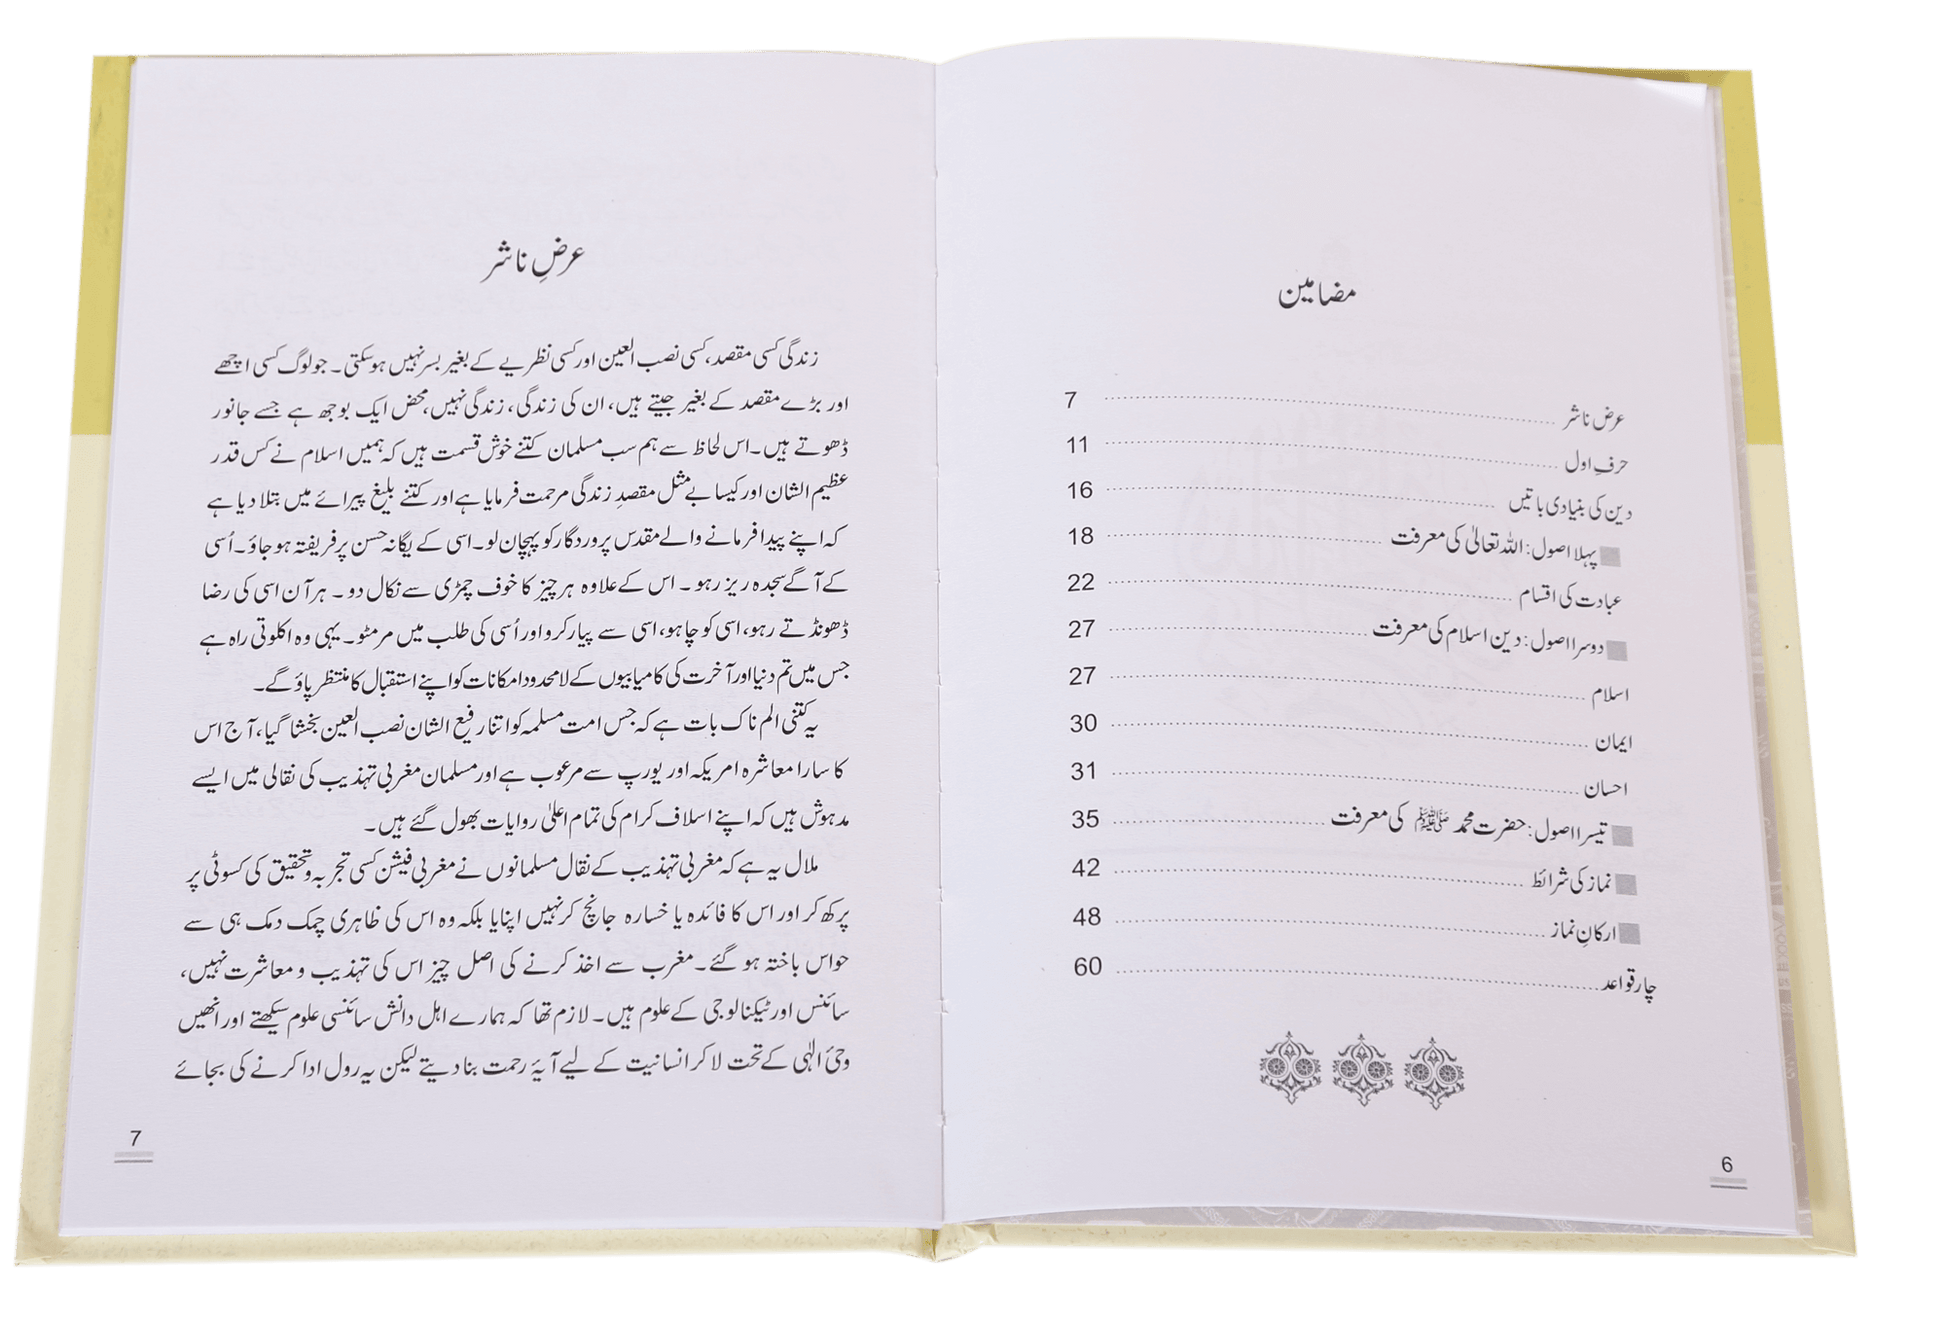 مضامین
عرض ناشر ........ 7
حرفِ اول ........ 11
دین کی بنیادی باتیں ........ 16
پہلا اصول: اللہ تعالیٰ کی معرفت ........ 18
عبادت کی اقسام ........ 22
دوسرا اصول: دین اسلام کی معرفت ........ 27
اسلام ........ 27
ایمان ........ 30
احسان ........ 31
تیسرا اصول: حضرت محمد ﷺ کی معرفت ........ 35
نماز کی شرائط ........ 42
ارکانِ نماز ........ 48
چار قواعد ........ 60
6
عرضِ ناشر
زندگی کسی مقصد، کسی نصب العین اور کسی نظریے کے بغیر بسر نہیں ہو سکتی۔ جو لوگ کسی اچھے
اور بڑے مقصد کے بغیر جیتے ہیں، ان کی زندگی، زندگی نہیں، محض ایک بوجھ ہے جسے جانور
ڈھوتے ہیں۔ اس لحاظ سے ہم سب مسلمان کتنے خوش قسمت ہیں کہ ہمیں اسلام نے کس قدر
عظیم الشان اور کیسا بے مثل مقصدِ زندگی مرحمت فرمایا ہے اور کتنے بلیغ پیرائے میں بتلا دیا ہے
کہ اپنے پیدا فرمانے والے مقدس پروردگار کو پہچان لو۔ اسی کے یگانہ حسن پر فریفتہ ہو جاؤ۔ اُسی
کے آگے سجدہ ریز رہو۔ اس کے علاوہ ہر چیز کا خوف چمڑی سے نکال دو۔ ہر آن اسی کی رضا
ڈھونڈتے رہو، اسی کو چاہو، اسی سے پیار کرو اور اُسی کی طلب میں مر مٹو۔ یہی وہ اکلوتی راہ ہے
جس میں تم دنیا اور آخرت کی کامیابیوں کے لامحدود امکانات کو اپنے استقبال کا منتظر پاؤ گے۔
یہ کتنی الم ناک بات ہے کہ جس امت مسلمہ کو اتنا رفیع الشان نصب العین بخشا گیا، آج اس
کا سارا معاشرہ امریکہ اور یورپ سے مرعوب ہے اور مسلمان مغربی تہذیب کی نقالی میں ایسے
مدہوش ہیں کہ اپنے اسلاف کرام کی تمام اعلیٰ روایات بھول گئے ہیں۔
ملال یہ ہے کہ مغربی تہذیب کے نقال مسلمانوں نے مغربی فیشن کسی تجربہ و تحقیق کی کسوٹی پر
پرکھ کر اور اس کا فائدہ یا خسارہ جانچ کر نہیں اپنایا بلکہ وہ اس کی ظاہری چمک دمک ہی سے
حواس باختہ ہو گئے۔ مغرب سے اخذ کرنے کی اصل چیز اس کی تہذیب و معاشرت نہیں،
سائنس اور ٹیکنالوجی کے علوم ہیں۔ لازم تھا کہ ہمارے اہل دانش سائنسی علوم سیکھتے اور انھیں
وحیٔ الٰہی کے تحت لا کر انسانیت کے لیے آیۂ رحمت بنا دیتے لیکن یہ رول ادا کرنے کی بجائے
7